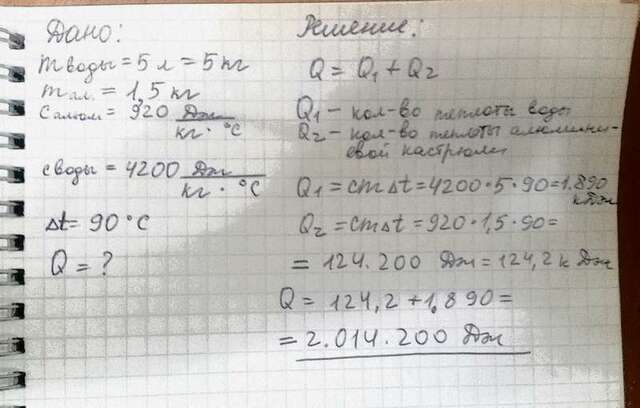 Дано:
m воды = 5 л = 5 кг
m ал. = 1,5 кг
C алюм = 920 Дж / кг · °C
c воды = 4200 Дж / кг · °C
Δt = 90 °C
Q = ?
Решение:
Q = Q1 + Q2
Q1 – кол-во теплоты воды
Q2 – кол-во теплоты алюмини-
евой кастрюли
Q1 = cmΔt = 4200 · 5 · 90 = 1.890
кДж
Q2 = cmΔt = 920 · 1,5 · 90 =
= 124.200 Дж = 124,2 кДж
Q = 124,2 + 1.890 =
= 2.014.200 Дж